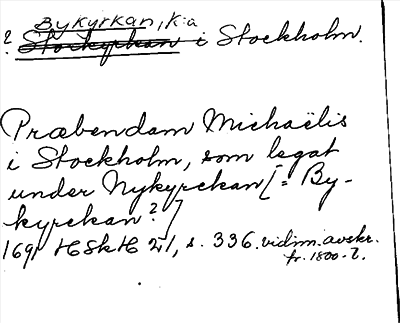 Bykyrkan, K:a
? Storkyrkan i Stockholm.
Præbendam Michaëlis
i Stockholm, som legat
under Nykyrckan [= By-
kyrckan?]
1691 HSkH 21, s. 336. vidim. avskr.
fr. 1800-t.